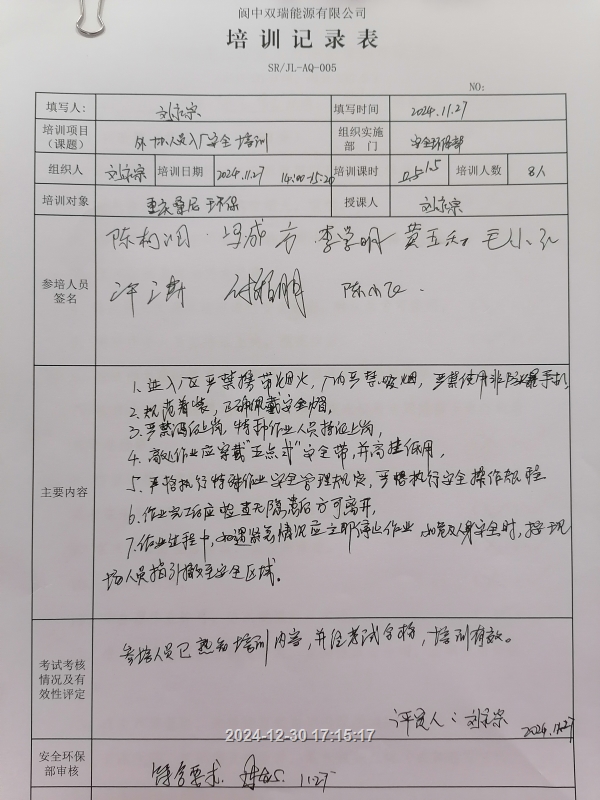 阆中双瑞能源有限公司
培训记录表
SR/JL-AQ-005
NO:
填写人: 填写时间 2024.11.27
培训项目(课题) 外协人员入厂安全培训 组织实施部门 安全环保部
组织人 培训日期 2024.11.27 14:00-15:20 培训课时 1.5 培训人数 8人
培训对象 环保 授课人
参培人员签名 李学明 黄五
主要内容
1.进入厂区严禁携带烟火,厂内严禁吸烟,严禁使用非防爆手机
2.规范着装,正确佩戴安全帽。
3.严禁酒后上岗,特种作业人员持证上岗,
4.高处作业应穿戴“五点式”安全带,并高挂低用,
5.严格执行特殊作业安全管理规定,严格执行安全操作规程
6.作业完工后应检查无隐患后方可离开,
7.作业过程中,如遇紧急情况应立即停止作业,如危及人身安全时,按现
场人员指引撤至安全区域。
考试考核情况及有效性评定
参培人员已熟知培训内容,并经考试合格,培训有效。
评定人: 2024.11.27
2024-12-30 17:15:17
安全环保部审核 符合要求. 11.27